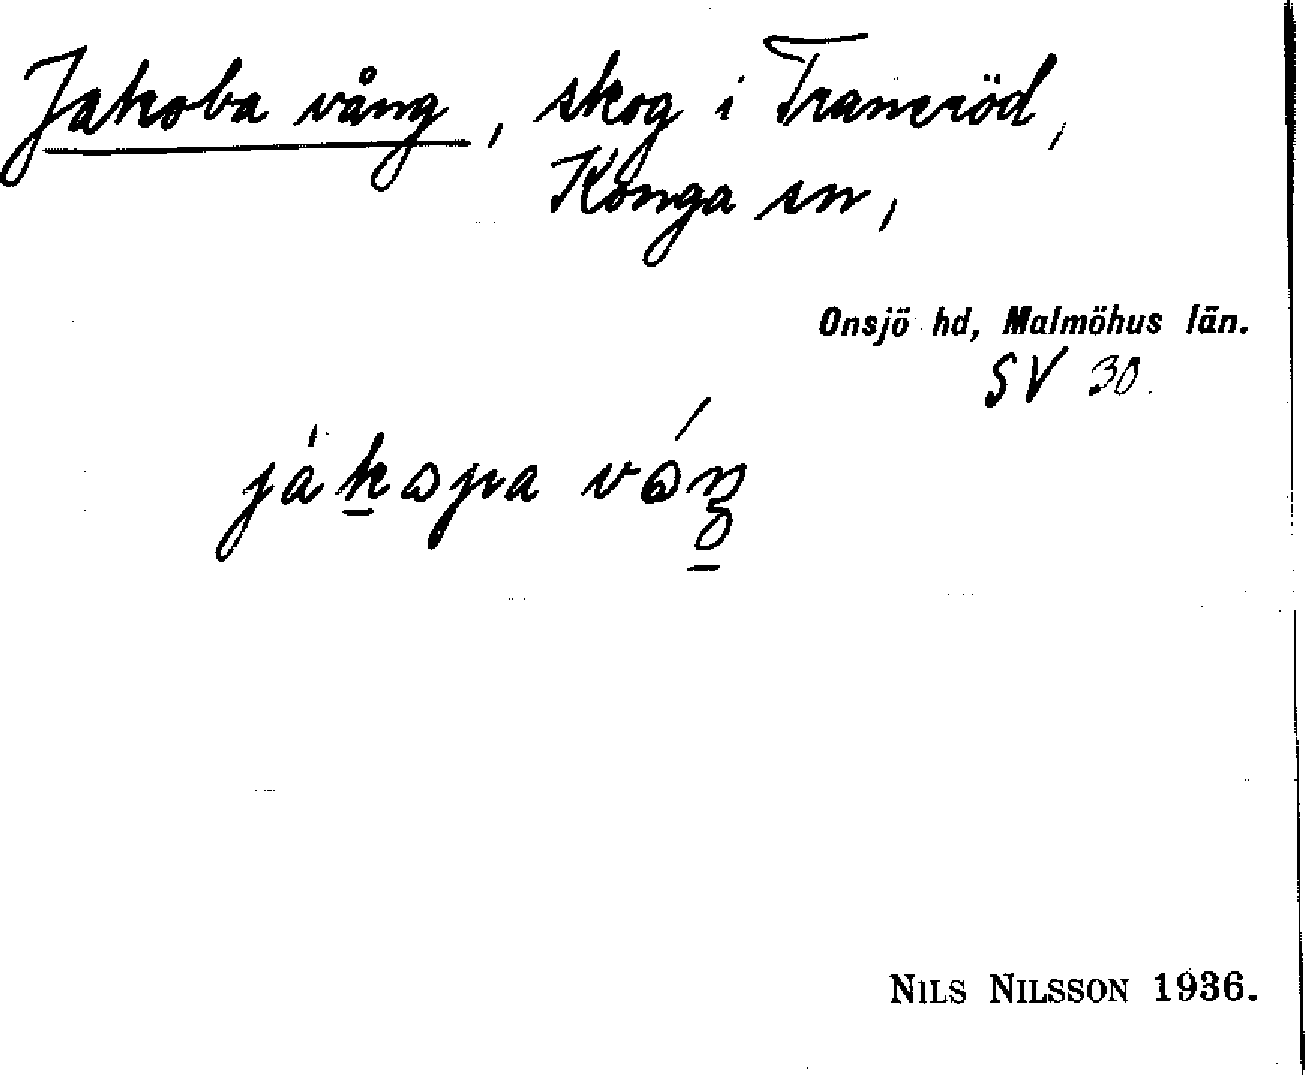 Jakoba vång, skog i Traneröd,
Konga sn,
Onsjö hd, Malmöhus län.
SV 30.
NILS NILSSON 1936.